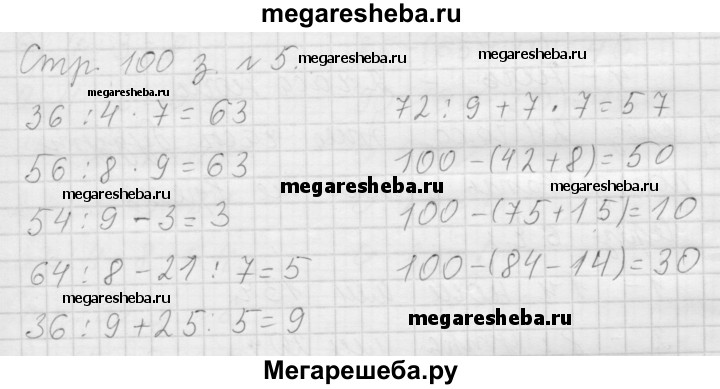 megaresheba.ru
Стр. 100 з. № 5. megaresheba.ru megaresheba.ru
megaresheba.ru
36 : 4 · 7 = 63
72 : 9 + 7 · 7 = 57
56 : 8 · 9 = 63
100 - (42 + 8) = 50
megaresheba.ru megaresheba.ru megaresheba.ru
54 : 9 - 3 = 3
100 - (75 + 15) = 10
64 : 8 - 21 : 7 = 5
100 - (84 - 14) = 30
megaresheba.ru
36 : 9 + 25 : 5 = 9
megaresheba.ru
Мегарешеба.ру